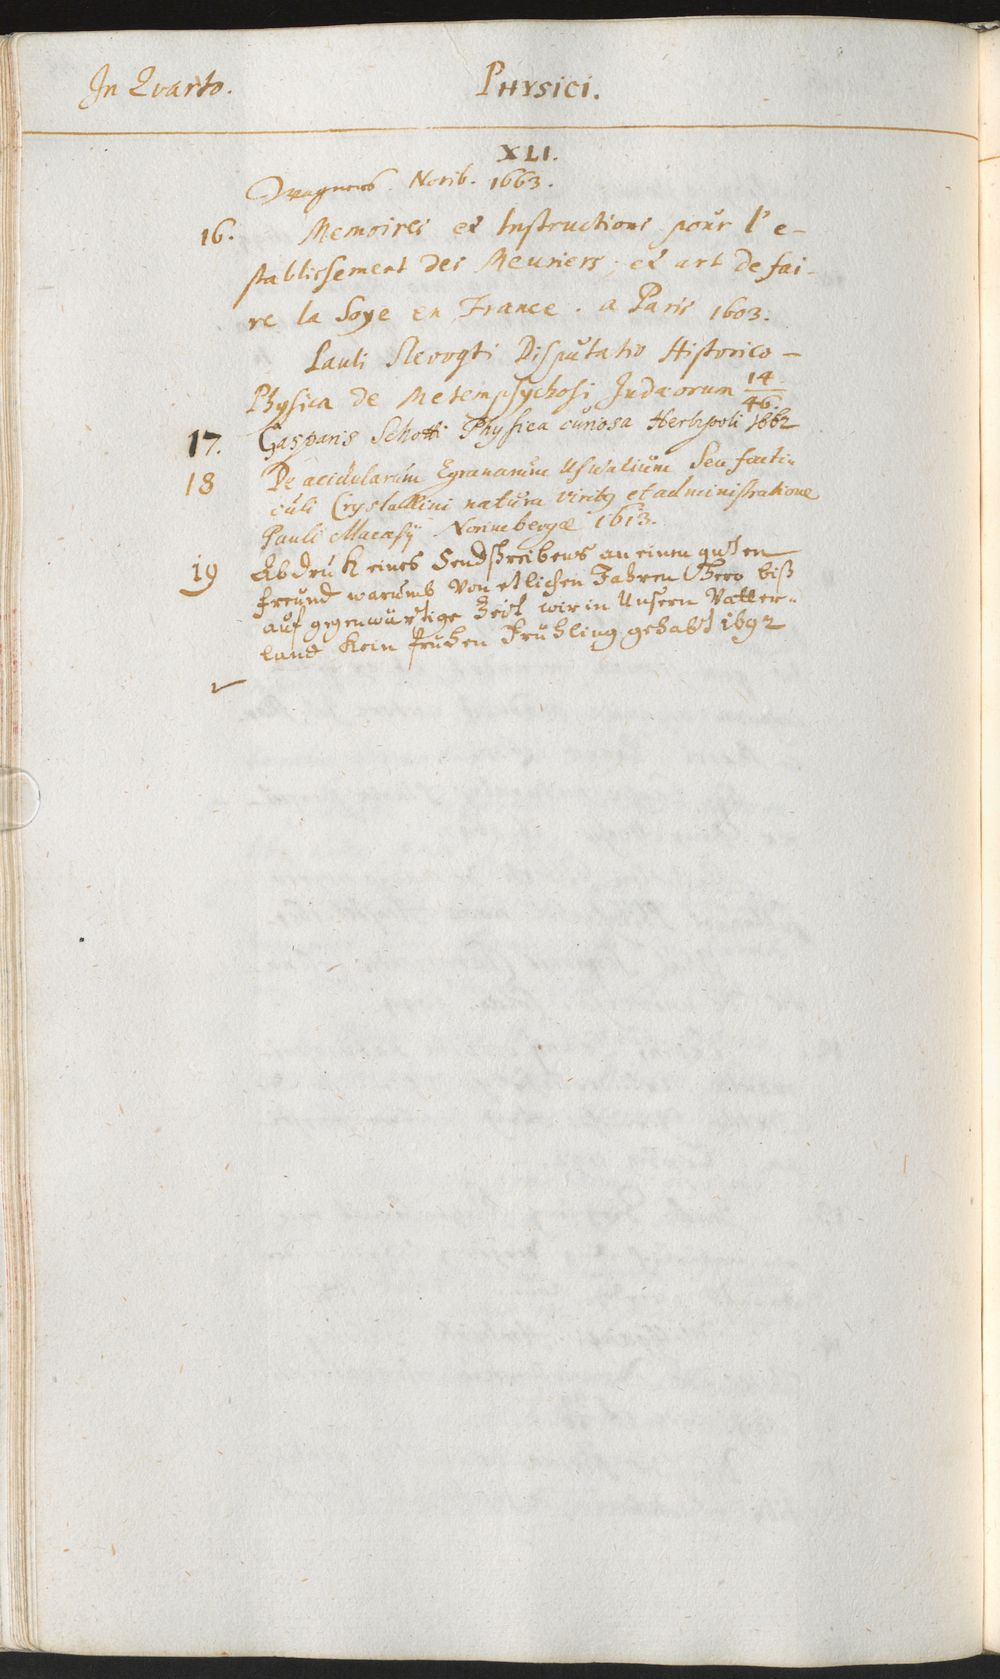 In Quarto. Physici.
XLI.
Wagners. Norib. 1663.
16. Memoires et Instructions pour l'e-
stablissement des Meuriers, et art de fai-
re la Soye en France. a Paris 1603.
Pauli Slevogti Disputatio Historico-
Physica de Metempsychosi Judæorum 14/46.
17. Gasparis Schotti Physica curiosa Herbipoli 1662
18 De acidularum Egranarum Usualium Seu fonti-
culi Crystallini natura viribq et administratione
Pauli Macasij Norimbergæ 1613.
19 Abdruk eines Sendschreibens an einen guten
freund warumb von etlichen Jahren Hero biß
auf gegenwürtige Zeit wir in Unsern Vatter-
land kein fruhen Frühling gehabt 1692